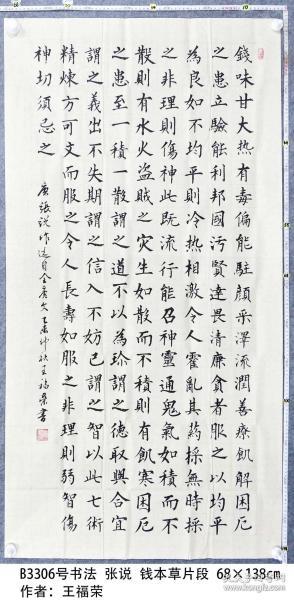 錢味甘大热有毒偏能駐顏采澤流潤善療飢解困厄
之患立驗能利邦國污賢達畏清廉貪者服之以均平
為良如不均平則冷熱相激令人霍亂其药採無時採
之非理則傷神此既流行能召神靈通鬼氣如積而不
散則有水火盜賊之灾生如散而不積則有飢寒困厄
之患至一積一散謂之道不以為珍謂之德取與合宜
謂之義出不失期謂之信入不妨己謂之智以此七術
精煉方可久而服之令人長壽如服之非理則弱智傷
神切須忌之
唐張説作选自全唐文乙未仲秋王福榮書
B3306号书法 张说 钱本草片段 68×138cm
作者：王福荣